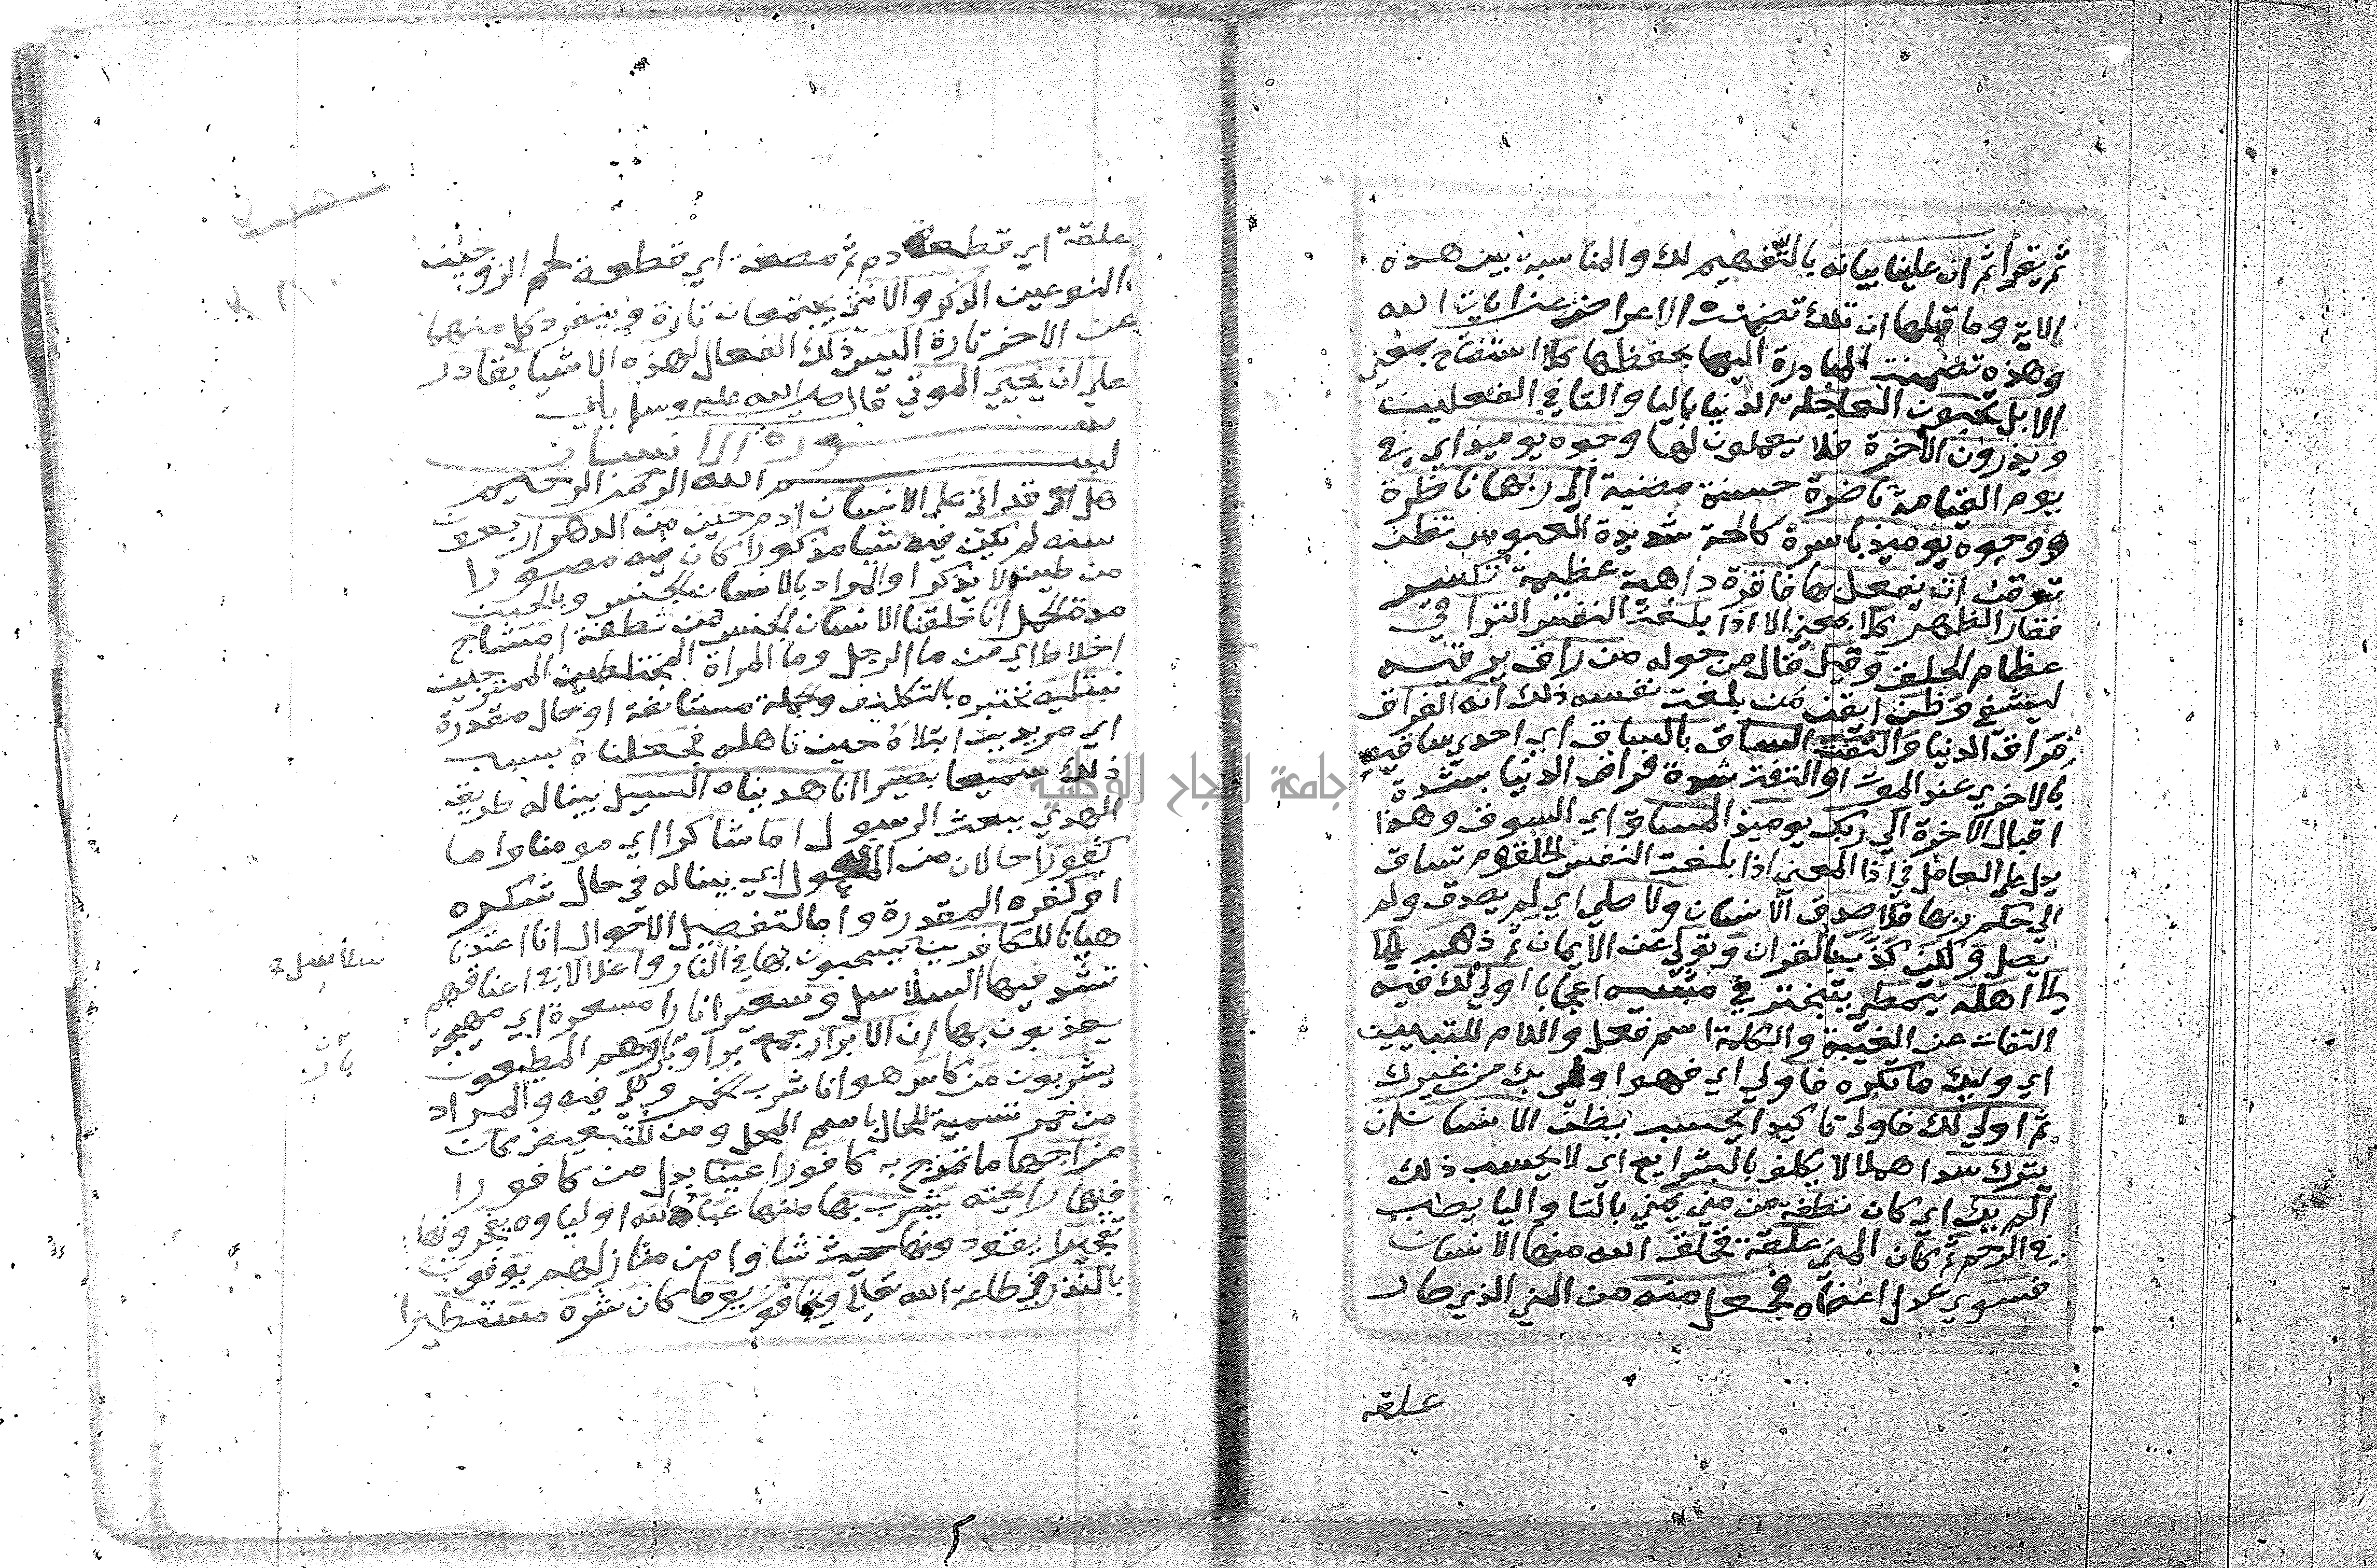 ثم يقرا ثم ان علينا بيانه بالتفهيم لك والمناسبة بين هذه
الاية وما قبلها ان تلك تضمنت الاعراض عن ايات الله
وهذه تضمنت المبادرة اليها بحفظها كلا استفتاح بمعني
الا بل يحبون العاجلة الدنيا باليا والتا في الفعلين
ويذرون الاخرة فلا يعملون لها وجوه يوميذ اي في
يوم القيامة ناضرة حسنة مضية الي ربها ناظرة
ووجوه يوميذ باسرة كالحة شديدة العبوس تظن
توقن ان يفعل بها فاقرة داهية عظيمة تكسر
فقار الظهر كلا بمعني الا اذا بلغت النفس التراقي
عظام الحلق وقيل قال من حوله من راق يرقيه
ليشفي وظن ايقن من بلغت نفسه ذلك انه الفراق
فراق الدنيا والتفت الساق بالساق اي احدي ساقيه
بالاخري عند الموت او التفت شدة فراق الدنيا بشدة
اقبال الاخرة الي ربك يوميذ المساق اي السوق وهذا
يدل علي العامل في اذا المعني اذا بلغت النفس الحلقوم تساق
الي حكم ربها فلا صدق الانسان ولا صلي اي لم يصدق ولم
يصل ولكن كذب بالقران وتولي عن الايمان ثم ذهب الي
اهله يتمطي يتبختر في مشيه اعجابا اولي لك فيه
التفات عن الغيبة والكلمة اسم فعل واللام للتبيين
اي وليك ما تكره فاولي اي فهو اولي بك من غيرك
ثم اولي لك فاولي تاكيد ايحسب يظن الانسان ان
يترك سدا هملا لا يكلف بالشرايع اي لا يحسب ذلك
الم يك اي كان نطفة من مني يمني بالتا واليا يصب
في الرحم ثم كان المني علقة فخلق الله منها الانسان
فسوي عدل اعضاه فجعل منه من المني الذي صار
علقة
علقة اي قطعة دم ثم مضغة اي قطعة لحم الزوجين
النوعين الذكر والانثي يجتمعان تارة وينفرد كل منهما
عن الاخر تارة اليس ذلك الفعال لهذه الاشيا بقادر
علي ان يحيي الموتي قال صلي الله عليه وسلم بلي
سورة الانسان
بسم الله الرحمن الرحيم
هل اتي قد اتي علي الانسان ادم حين من الدهر اربعون
سنه لم يكن فيه شيا مذكورا كان فيه مصورا
من طين لا يذكر او المراد بالانسان الجنس وبالحين
مدة الحمل انا خلقنا الانسان الجنس من نطفة امشاج
اخلاط اي من ما الرجل وما المراة المختلطين الممتزجين
نبتليه نختبره بالتكليف والجملة مستانفة او حال مقدرة
اي مريدين ابتلاه حين تاهله فجعلناه بسبب
ذلك سميعا بصيرا انا هديناه السبيل بينا له طريق
الهدي ببعث الرسول اما شاكرا اي مومنا واما
كفورا حالان من المفعول اي بينا له في حال شكره
او كفره المقدرة واما لتفصيل الاحوال انا اعتدنا
هيانا للكافرين يسحبون بها في النار واغلالا في اعناقهم
سلاسل
تشد فيها السلاسل وسعيرا نارا مسعرة اي مهيجة
يعذبون بها ان الابرار جمع بر او بار وهم المطيعون
بار
يشربون من كاس هو انا شرب الخمر وهي فيه والمراد
من خمر تسمية للحال باسم المحل ومن للتبعيض كان
مزاجها ما تمزج به كافورا عينا بدل من كافورا
فيها رايحته يشرب بها منها عباد الله اولياوه يفجرونها
تفجيرا يقودونها حيث شاوا من منازلهم يوفون
بالنذر في طاعة الله تعالي ويخافون يوما كان شره مستطيرا
جامعة النجاح الوطنية